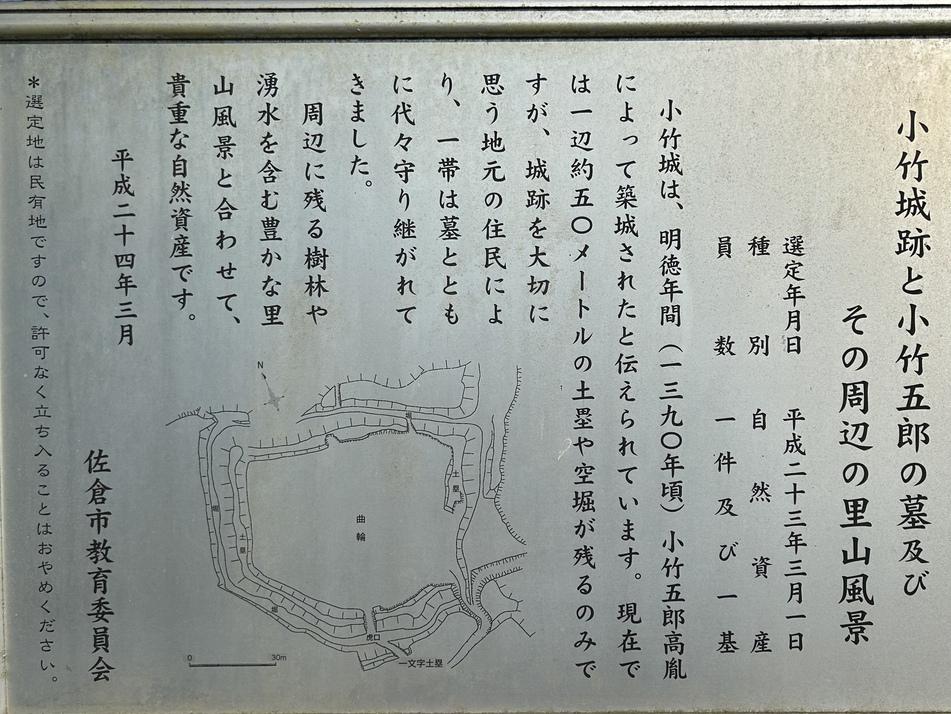 小竹城跡と小竹五郎の墓及び
その周辺の里山風景
選定年月日　平成二十三年三月一日
種別　自然資産
員数　一件及び一基
小竹城は、明徳年間（一三九〇年頃）小竹五郎高胤
によって築城されたと伝えられています。現在で
は一辺約五〇メートルの土塁や空堀が残るのみで
すが、城跡を大切に
思う地元の住民によ
り、一帯は墓ととも
に代々守り継がれて
きました。
周辺に残る樹林や
湧水を含む豊かな里
山風景と合わせて、
貴重な自然資産です。
平成二十四年三月
佐倉市教育委員会
＊選定地は民有地ですので、許可なく立ち入ることはおやめください。
N
堀
土塁
曲輪
堀
土塁
堀
虎口
一文字土塁
0 30m